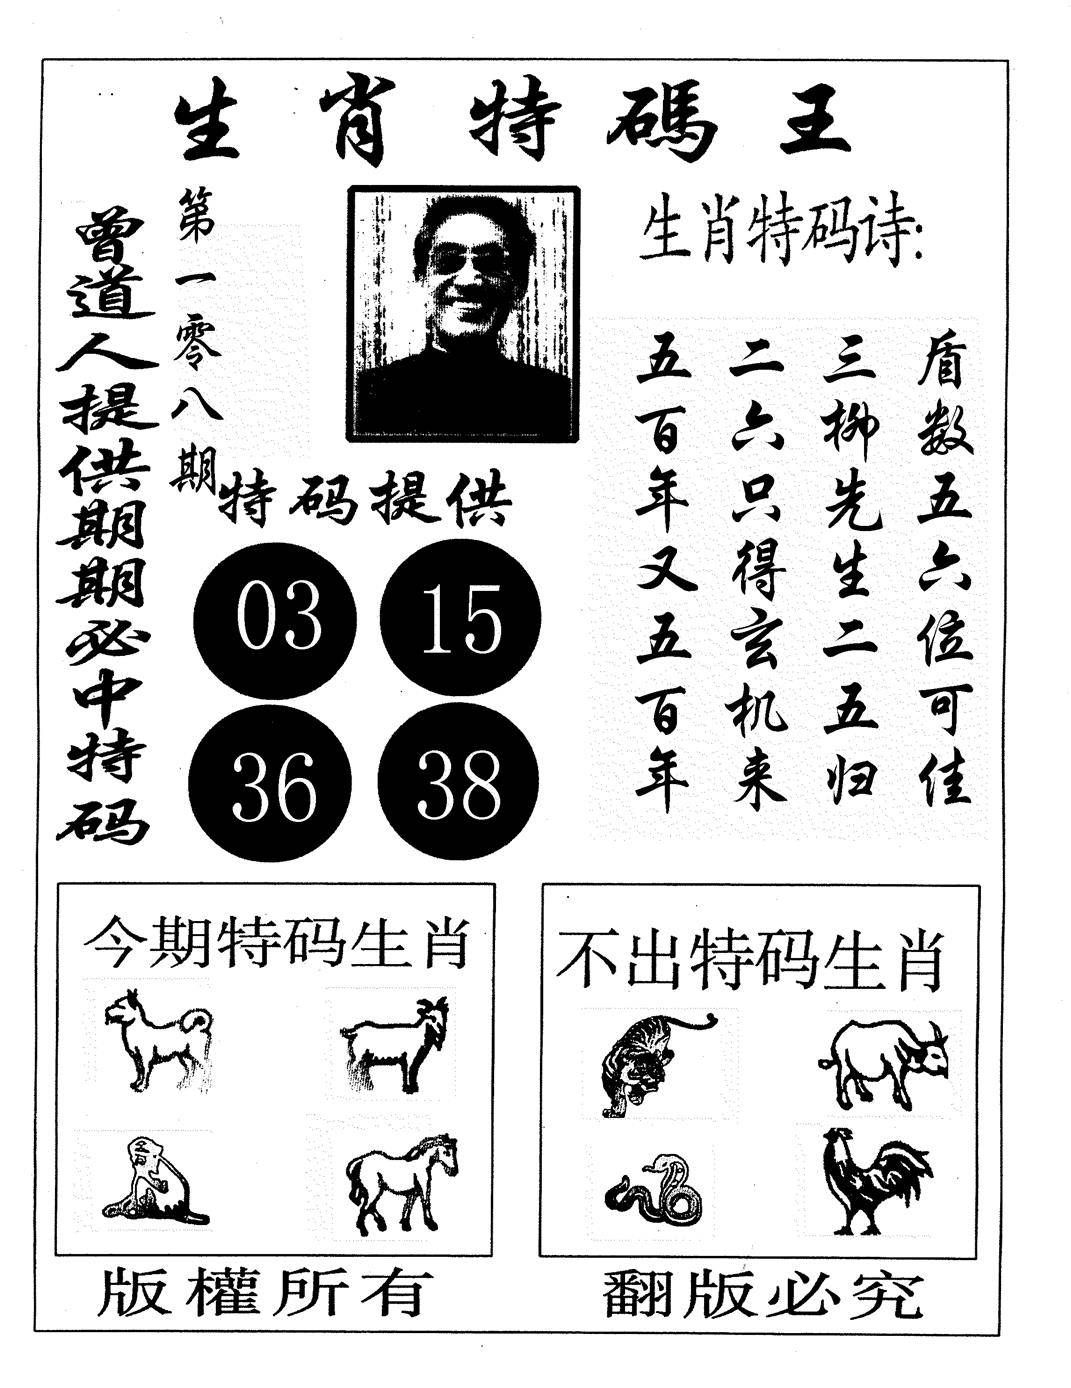 生肖特碼王
曾道人提供期期必中特码
第一零八期
生肖特码诗:
盾数五六位可佳
三柳先生二五归
二六只得玄机来
五百年又五百年
特码提供
03
15
36
38
今期特码生肖
不出特码生肖
版權所有
翻版必究